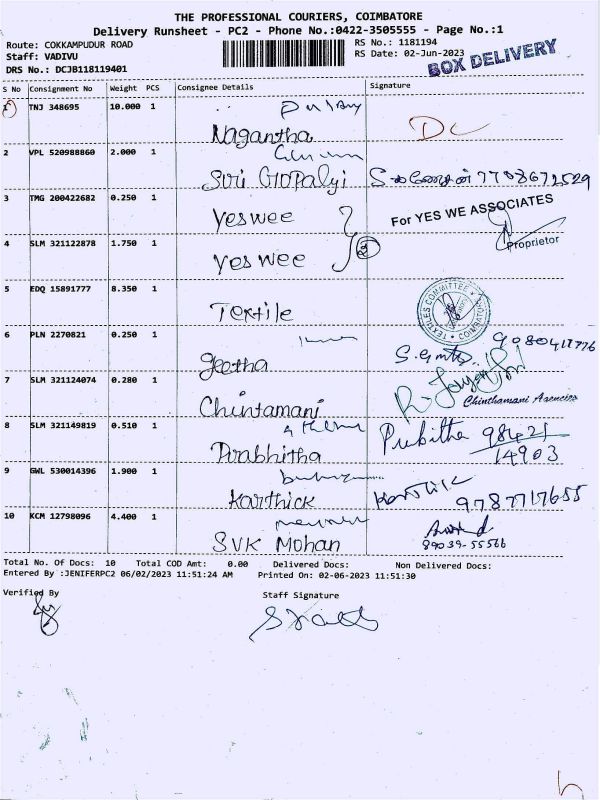 THE PROFESSIONAL COURIERS, COIMBATORE
Delivery Runsheet - PC2 - Phone No.:0422-3505555 - Page No.:1
Route: COKKAMPUDUR ROAD
RS No.: 1181194
Staff: VADIVU
RS Date: 02-Jun-2023
DRS No.: DCJB118119401
BOX DELIVERY
S No Consignment No Weight PCS Consignee Details Signature
1 TNJ 348695 10.000 1
Nagantha DC
2 VPL 520988860 2.000 1
Siri Gopalji 7708672529
3 TMG 200422682 0.250 1 yes wee For YES WE ASSOCIATES
Proprietor
4 SLM 321122878 1.750 1 yes wee 2
5 EDQ 15891777 8.350 1 Textile TEXTILES COMMITTEE
6 PLN 2270821 0.250 1 Geetha 9080417776
7 SLM 321124074 0.280 1 Chintamani Chinthamani Agencies
8 SLM 321149819 0.510 1 Prabhitha 98421
14903
9 GWL 530014396 1.900 1 Karthick Karthik 9787717655
10 KCM 12798096 4.400 1 SVK Mohan 89039-55566
Total No. Of Docs: 10 Total COD Amt: 0.00 Delivered Docs: Non Delivered Docs:
Entered By :JENIFERPC2 06/02/2023 11:51:24 AM Printed On: 02-06-2023 11:51:30
Verified By Staff Signature